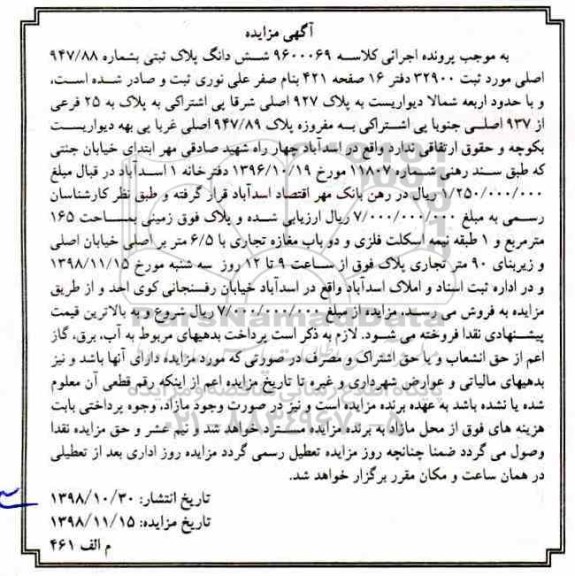 آگهی مزایده
به موجب پرونده اجرائی کلاسه ۹۶۰۰۰۶۹ شش دانگ پلاک ثبتی بشماره ۹۴۷/۸۸
اصلی مورد ثبت ۳۲۹۰۰ دفتر ۱۶ صفحه ۴۲۱ بنام صفر علی نوری ثبت و صادر شده است،
و با حدود اربعه شمالا دیواریست به پلاک ۹۲۷ اصلی شرقا پی اشتراکی به پلاک به ۲۵ فرعی
از ۹۳۷ اصلی جنوبا پی اشتراکی به مفروزه پلاک ۹۴۷/۸۹ اصلی غربا پی بهه دیواریست
بکوچه و حقوق ارتفاقی ندارد واقع در اسدآباد چهار راه شهید صادقی مهر ابتدای خیابان جنتی
که طبق سند رهنی شماره ۱۱۸۰۷ مورخ ۱۳۹۶/۱۰/۱۹ دفترخانه ۱ اسدآباد در قبال مبلغ
۱/۲۵۰/۰۰۰/۰۰۰ ریال در رهن بانک مهر اقتصاد اسدآباد قرار گرفته و طبق نظر کارشناسان
رسمی به مبلغ ۷/۰۰۰/۰۰۰/۰۰۰ ریال ارزیابی شده و پلاک فوق زمینی بمساحت ۱۶۵
مترمربع و ۱ طبقه نیمه اسکلت فلزی و دو باب مغازه تجاری با ۶/۵ متر بر اصلی خیابان اصلی
و زیربنای ۹۰ متر تجاری پلاک فوق از ساعت ۹ تا ۱۲ روز سه شنبه مورخ ۱۳۹۸/۱۱/۱۵
و در اداره ثبت اسناد و املاک اسدآباد واقع در اسدآباد خیابان رفسنجانی کوی احد و از طریق
مزایده به فروش می رسد. مزایده از مبلغ ۷/۰۰۰/۰۰۰/۰۰۰ ریال شروع و به بالاترین قیمت
پیشنهادی نقدا فروخته می شود. لازم به ذکر است پرداخت بدهیهای مربوط به آب، برق، گاز
اعم از حق انشعاب و یا حق اشتراک و مصرف در صورتی که مورد مزایده دارای آنها باشد و نیز
بدهیهای مالیاتی و عوارض شهرداری و غیره تا تاریخ مزایده اعم از اینکه رقم قطعی آن معلوم
شده یا نشده باشد به عهده برنده مزایده است و نیز در صورت وجود مازاد، وجوه پرداختی بابت
هزینه های فوق از محل مازاد به برنده مزایده مسترد خواهد شد و نیم عشر و حق مزایده نقدا
وصول می گردد ضمنا چنانچه روز مزایده تعطیل رسمی گردد مزایده روز اداری بعد از تعطیلی
در همان ساعت و مکان مقرر برگزار خواهد شد.
تاریخ انتشار: ۱۳۹۸/۱۰/۳۰
تاریخ مزایده: ۱۳۹۸/۱۱/۱۵
م الف ۴۶۱